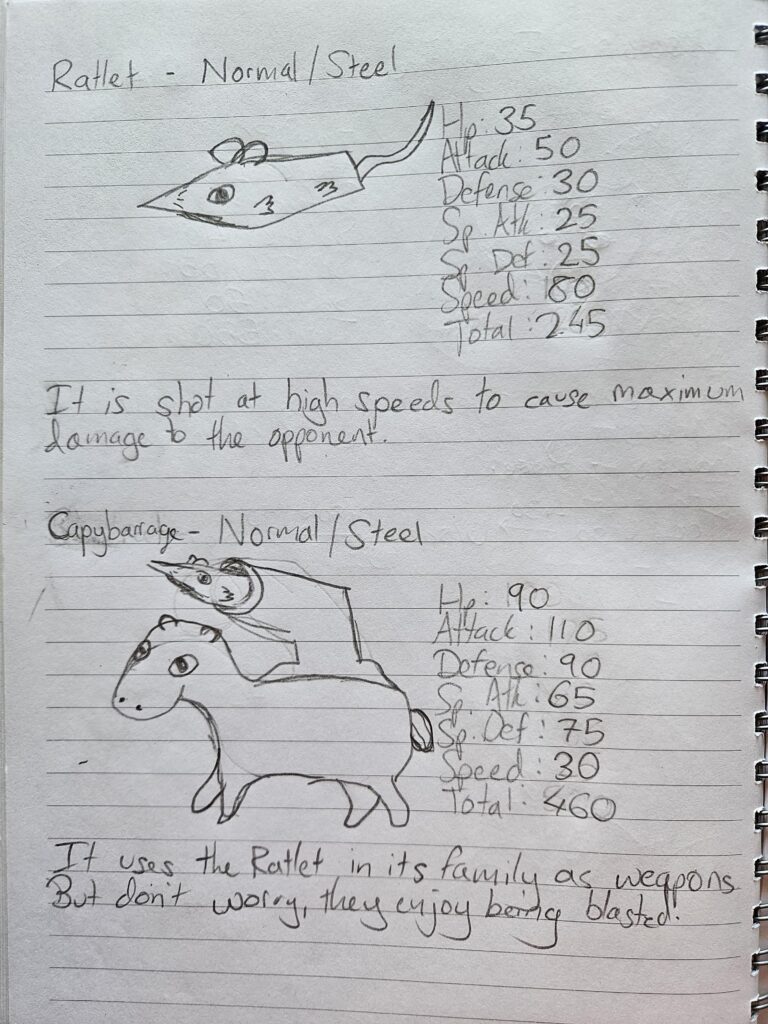 Ratlet - Normal/Steel
Hp: 35
Attack: 50
Defense: 30
Sp. Atk: 25
Sp. Def: 25
Speed: 80
Total: 245
It is shot at high speeds to cause maximum
damage to the opponent.
Capybarrage - Normal/Steel
Hp: 90
Attack: 110
Defense: 90
Sp. Atk: 65
Sp. Def: 75
Speed: 30
Total: 460
It uses the Ratlet in its family as weapons.
But don't worry, they enjoy being blasted.